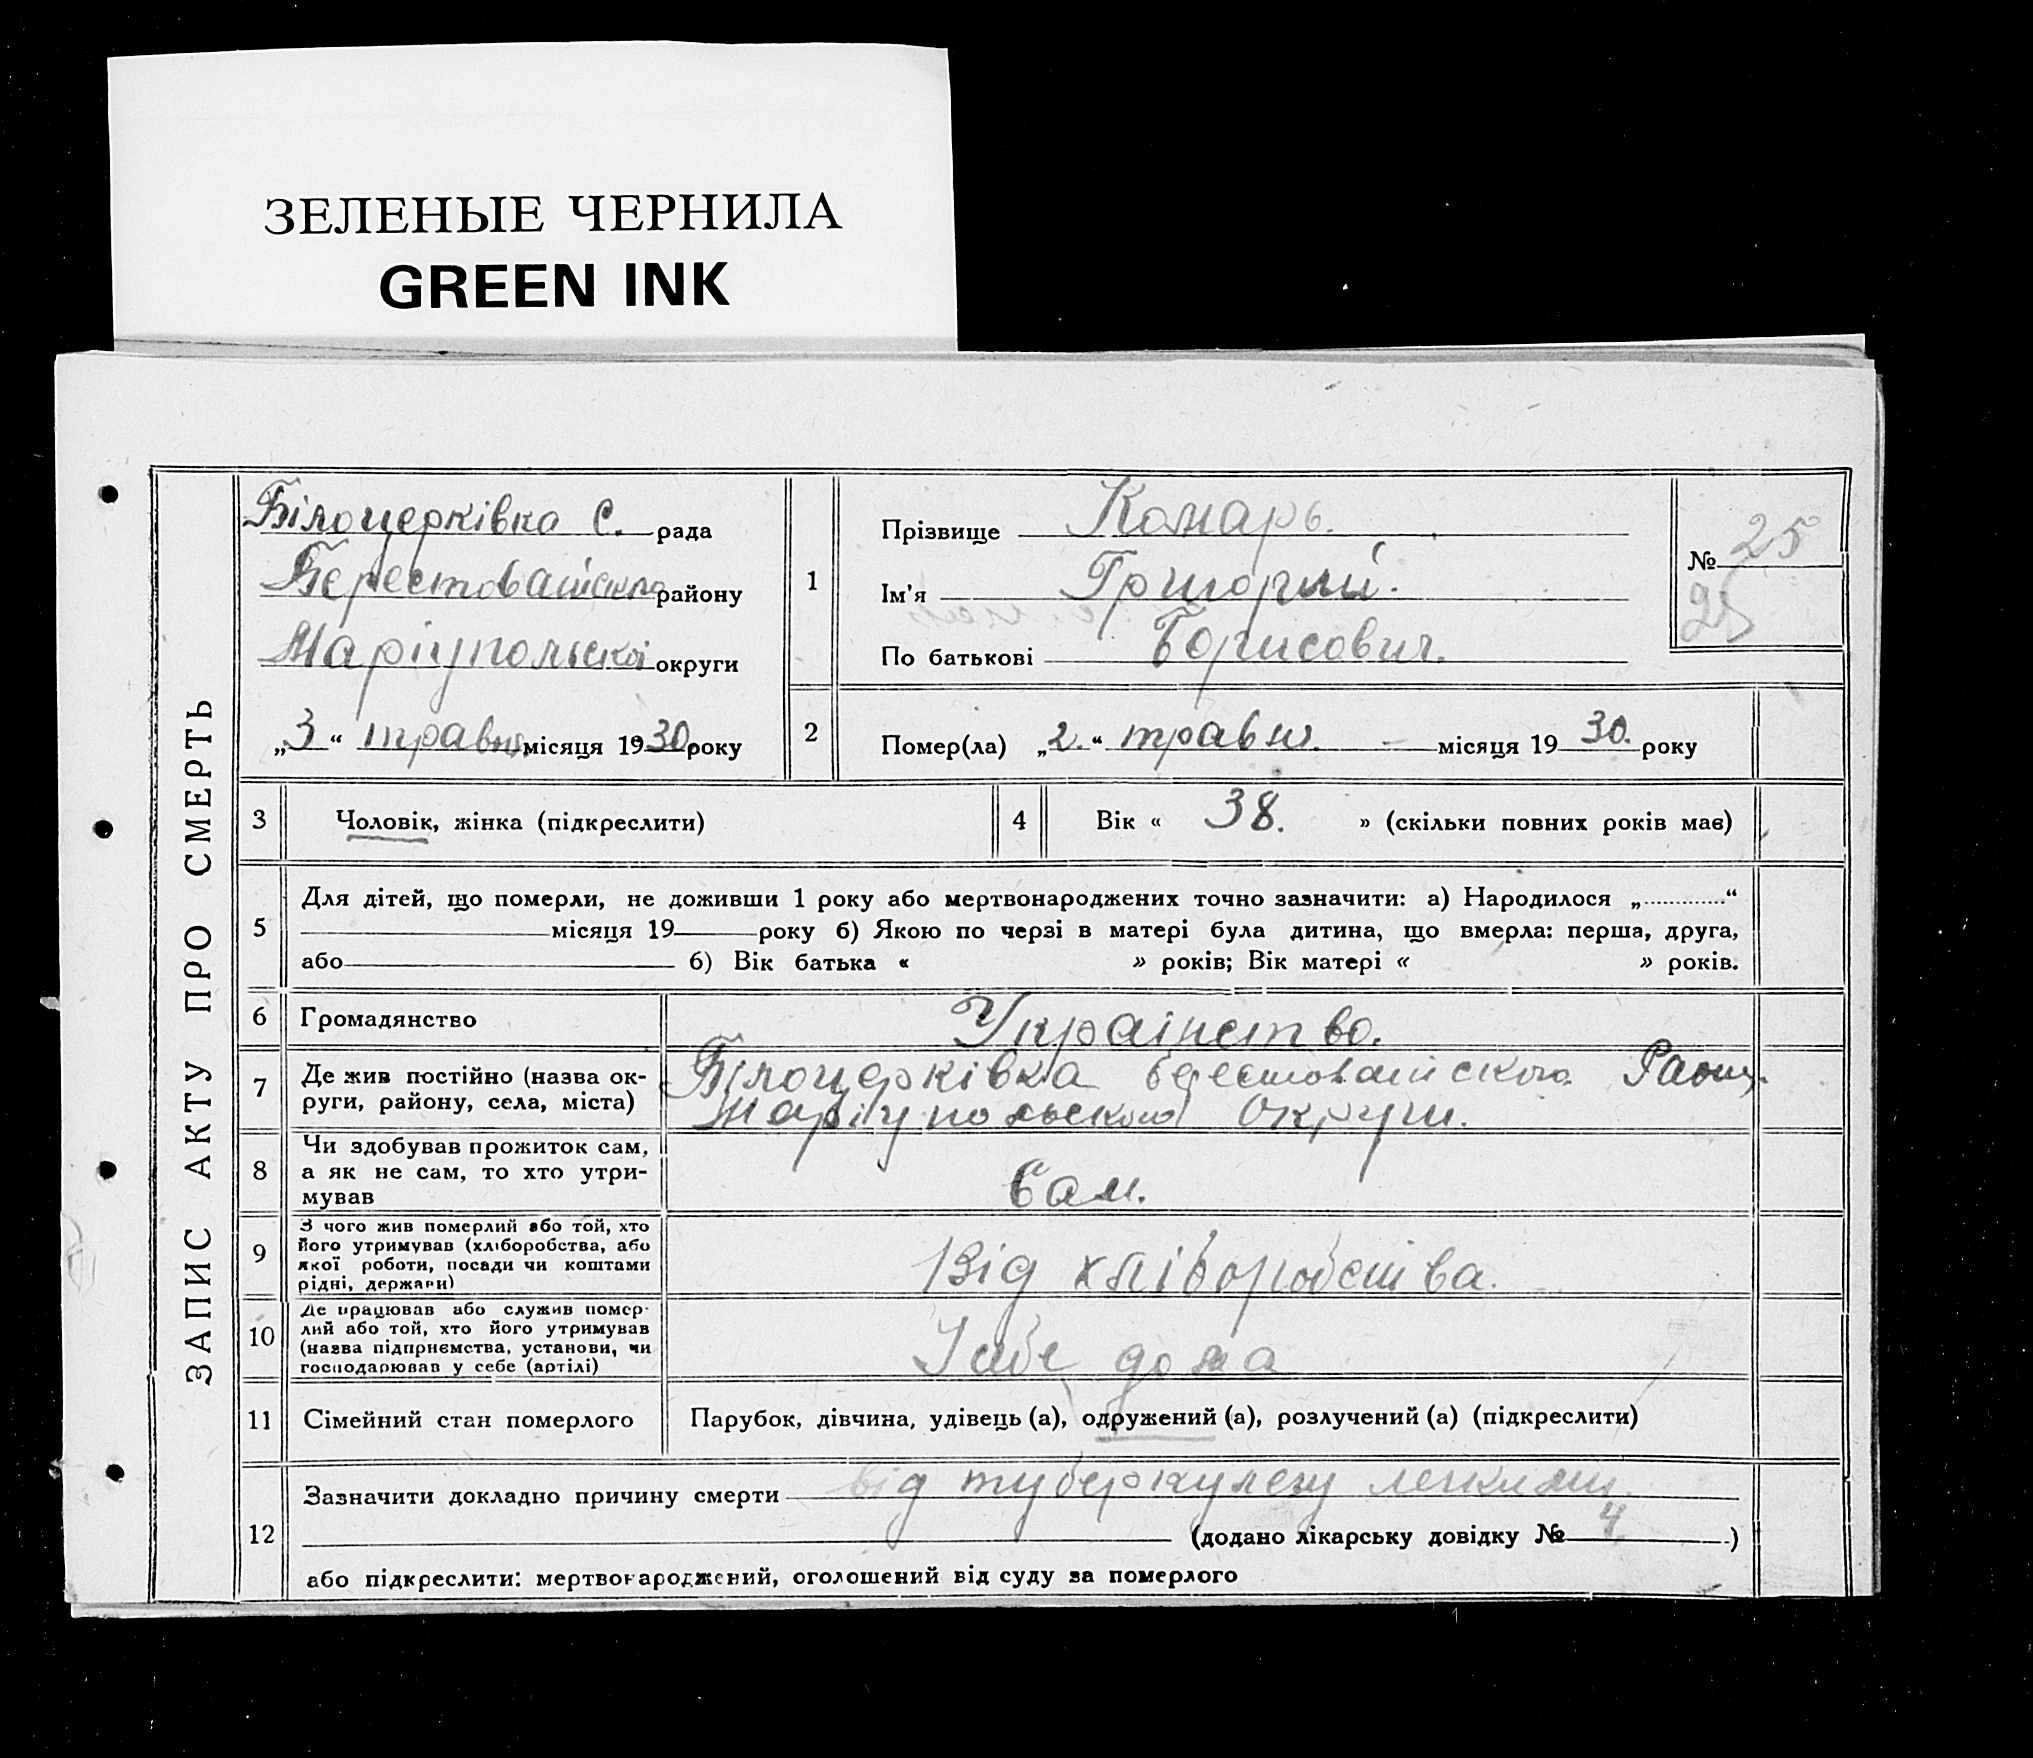 ЗЕЛЕНЫЕ ЧЕРНИЛА
GREEN INK
ЗАПИС АКТУ ПРО СМЕРТЬ
Білоцерківка С. рада
Берестовайського району
Маріупольскої округи
„3“ травня місяця 1930 року
1
Прізвище Комарь.
Ім'я Григорий.
По батькові Борисович.
№ 25
25
2
Помер(ла) „2.“ травня. місяця 1930. року
3 Чоловік, жінка (підкреслити)
4 Вік « 38. » (скільки повних років має)
5
Для дітей, що померли, не доживши 1 року або мертвонароджених точно зазначити: а) Народилося „ “
місяця 19 року б) Якою по черзі в матері була дитина, що вмерла: перша, друга,
або б) Вік батька « » років; Вік матері « » років.
6 Громадянство Украінство.
7
Де жив постійно (назва ок-
руги, району, села, міста)
Білоцерківка берестовайського Раону.
Маріупольской Округи.
8
Чи здобував прожиток сам,
а як не сам, то хто утри-
мував
Сам.
9
З чого жив померлий або той, хто
його утримував (хліборобства, або
якої роботи, посади чи коштами
рідні, держави)
Від хліборобства.
10
Де працював або служив помер-
лий або той, хто його утримував
(назва підприємства, установи, чи
господарював у себе (артілі)
У себе дома
11 Сімейний стан померлого Парубок, дівчина, удівець (а), одружений (а), розлучений (а) (підкреслити)
12
Зазначити докладно причину смерти від туберкулезу легкими.
(додано лікарську довідку № 4. )
або підкреслити: мертвонароджений, оголошений від суду за померлого